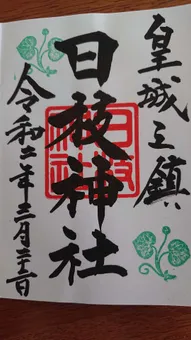 皇城之鎮
日枝神社
日枝神社
令和二年三月二十三日